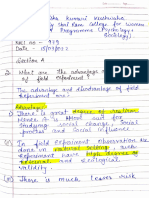 Kumari Kushwaha
Shri Ram College for Women
Programme (Psychology+
Sociology)
Roll no - 939
Section A
1) What are the advantage
of field experiment?
The advantage and disadvantage of field
Experiment are:
Advantage:
1) There is great degree of realism
Hence it is apt for
studying social change, social
process and social influence
2) In field Experiment observation
done in natural settings, such
experiment have high degree of
external and ecological
validity.
3) There is much lesser risk